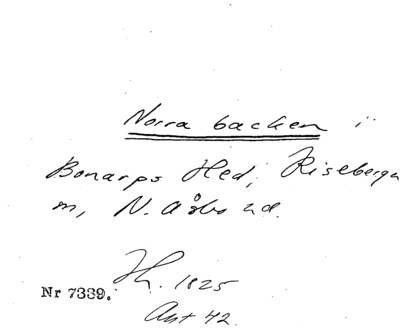 Norra backen i
Bonarps Hed, Riseberga
m, N. Åsbo hd.
Nr 7339.
1825
42